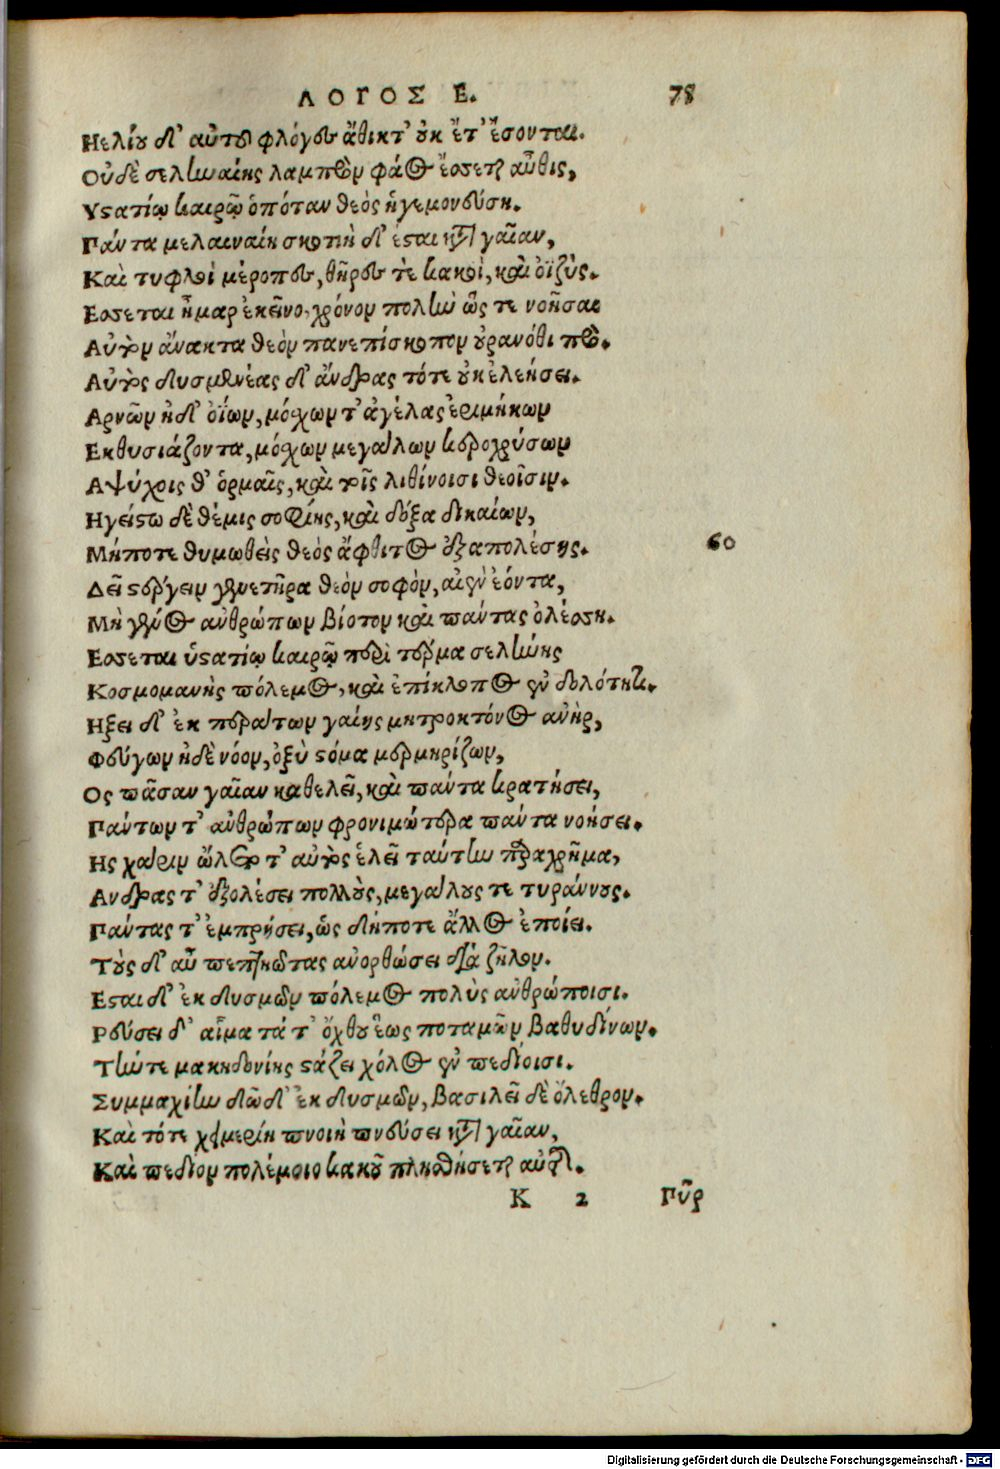 ΛΟΓΟΣ Ε. 78
Ηελίου δ' αὐτοῦ φλόγες ἄθικτ' οὐκ ἔτ' ἔσονται.
Οὐδὲ σεληναίης λαμπρὸν φάος ἔσσεται αὖθις,
Υστατίῳ καιρῷ ὁπόταν θεὸς ἡγεμονεύσῃ.
Πάντα μελαιναίη σκοτιὴ δ' ἔσται κατὰ γαῖαν,
Καὶ τυφλοὶ μέροπες, θῆρες τὲ κακοὶ, καὶ ὀϊζύς.
Εσσεται ἦμαρ ἐκεῖνο χρόνον πολὺν ὥς τε νοῆσαι
Αὐτὸν ἄνακτα θεὸν πανεπίσκοπον οὐρανόθι πρό.
Αὐτὸς δυσμενέας δ' ἄνδρας τότε οὐκ ἐλεήσει.
Αρνῶν ἠδ' οἴων, μόσχων τ' ἀγέλας ἐριμήκων
Εκθυσιάζοντα, μόσχων μεγάλων κεροχρύσων
Αψύχοις θ' ὁρμαῖς, καὶ τοῖς λιθίνοισι θεοῖσιν.
Ηγείστω δὲ θέμις σοφίης, καὶ δόξα δικαίων,
Μήποτε θυμωθεὶς θεὸς ἄφθιτος ἐξαπολέσῃς. 60
Δεῖ στέργειν γενετῆρα θεὸν σοφὸν, αἰὲν ἐόντα,
Μὴ γένος ἀνθρώπων βίοτον καὶ πάντας ὀλέσσῃ.
Εσσεται ὑστατίῳ καιρῷ περὶ τέρμα σελήνης
Κοσμομανὴς πόλεμος, καὶ ἐπίκλοπος ἐν δολότητι.
Ηξει δ' ἐκ περάτων γαίης μητροκτόνος ἀνὴρ,
Φεύγων ἠδὲ νόον, ὀξὺ στόμα μερμηρίζων,
Ος πᾶσαν γαῖαν καθελεῖ, καὶ πάντα κρατήσει,
Πάντων τ' ἀνθρώπων φρονιμώτερα πάντα νοήσει.
Ης χάριν ὤλετό τ' αὐτὸς ἑλεῖ ταύτην παραχρῆμα,
Ανδρας τ' ἐξολέσει πολλοὺς, μεγάλους τε τυράννους.
Πάντας τ' ἐμπρήσει, ὡς δήποτε ἄλλος ἐποίει.
Τοὺς δ' αὖ πεπτηῶτας ἀνορθώσει διὰ ζῆλον.
Εσται δ' ἐκ δυσμῶν πόλεμος πολὺς ἀνθρώποισι.
Ρεύσει δ' αἷμα τά τ' ὄχθου ἕως ποταμῶν βαθυδίνων.
Τήν τε μακηδονίης στάζει χόλος ἐν πεδίοισι.
Συμμαχίην δῶ δ' ἐκ δυσμῶν, βασιλεῖ δὲ ὄλεθρον.
Καὶ τότε χειμερίη πνοιὴ πνεύσει κατὰ γαῖαν,
Καὶ πεδίον πολέμοιο κακοῦ πληθήσεται αὖτις.
Κ 2 Πῦρ
Digitalisierung gefördert durch die Deutsche Forschungsgemeinschaft - DFG